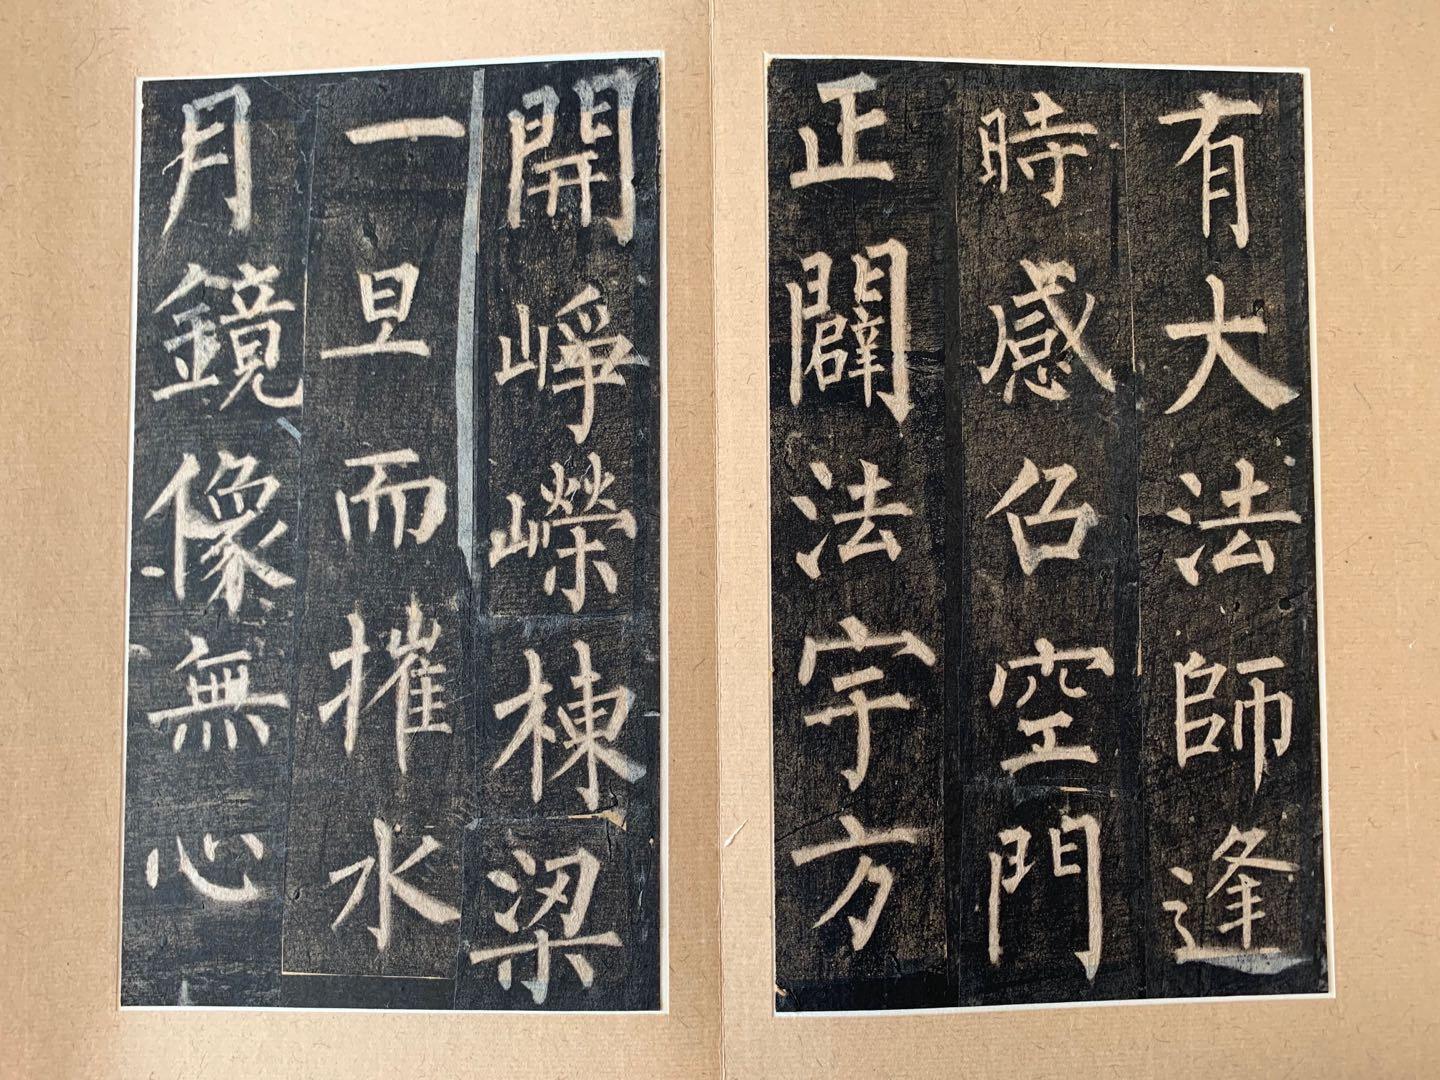 有大法師逢
時感召空門
正闢法宇方
開崢嶸棟梁
一旦而摧水
月鏡像無心